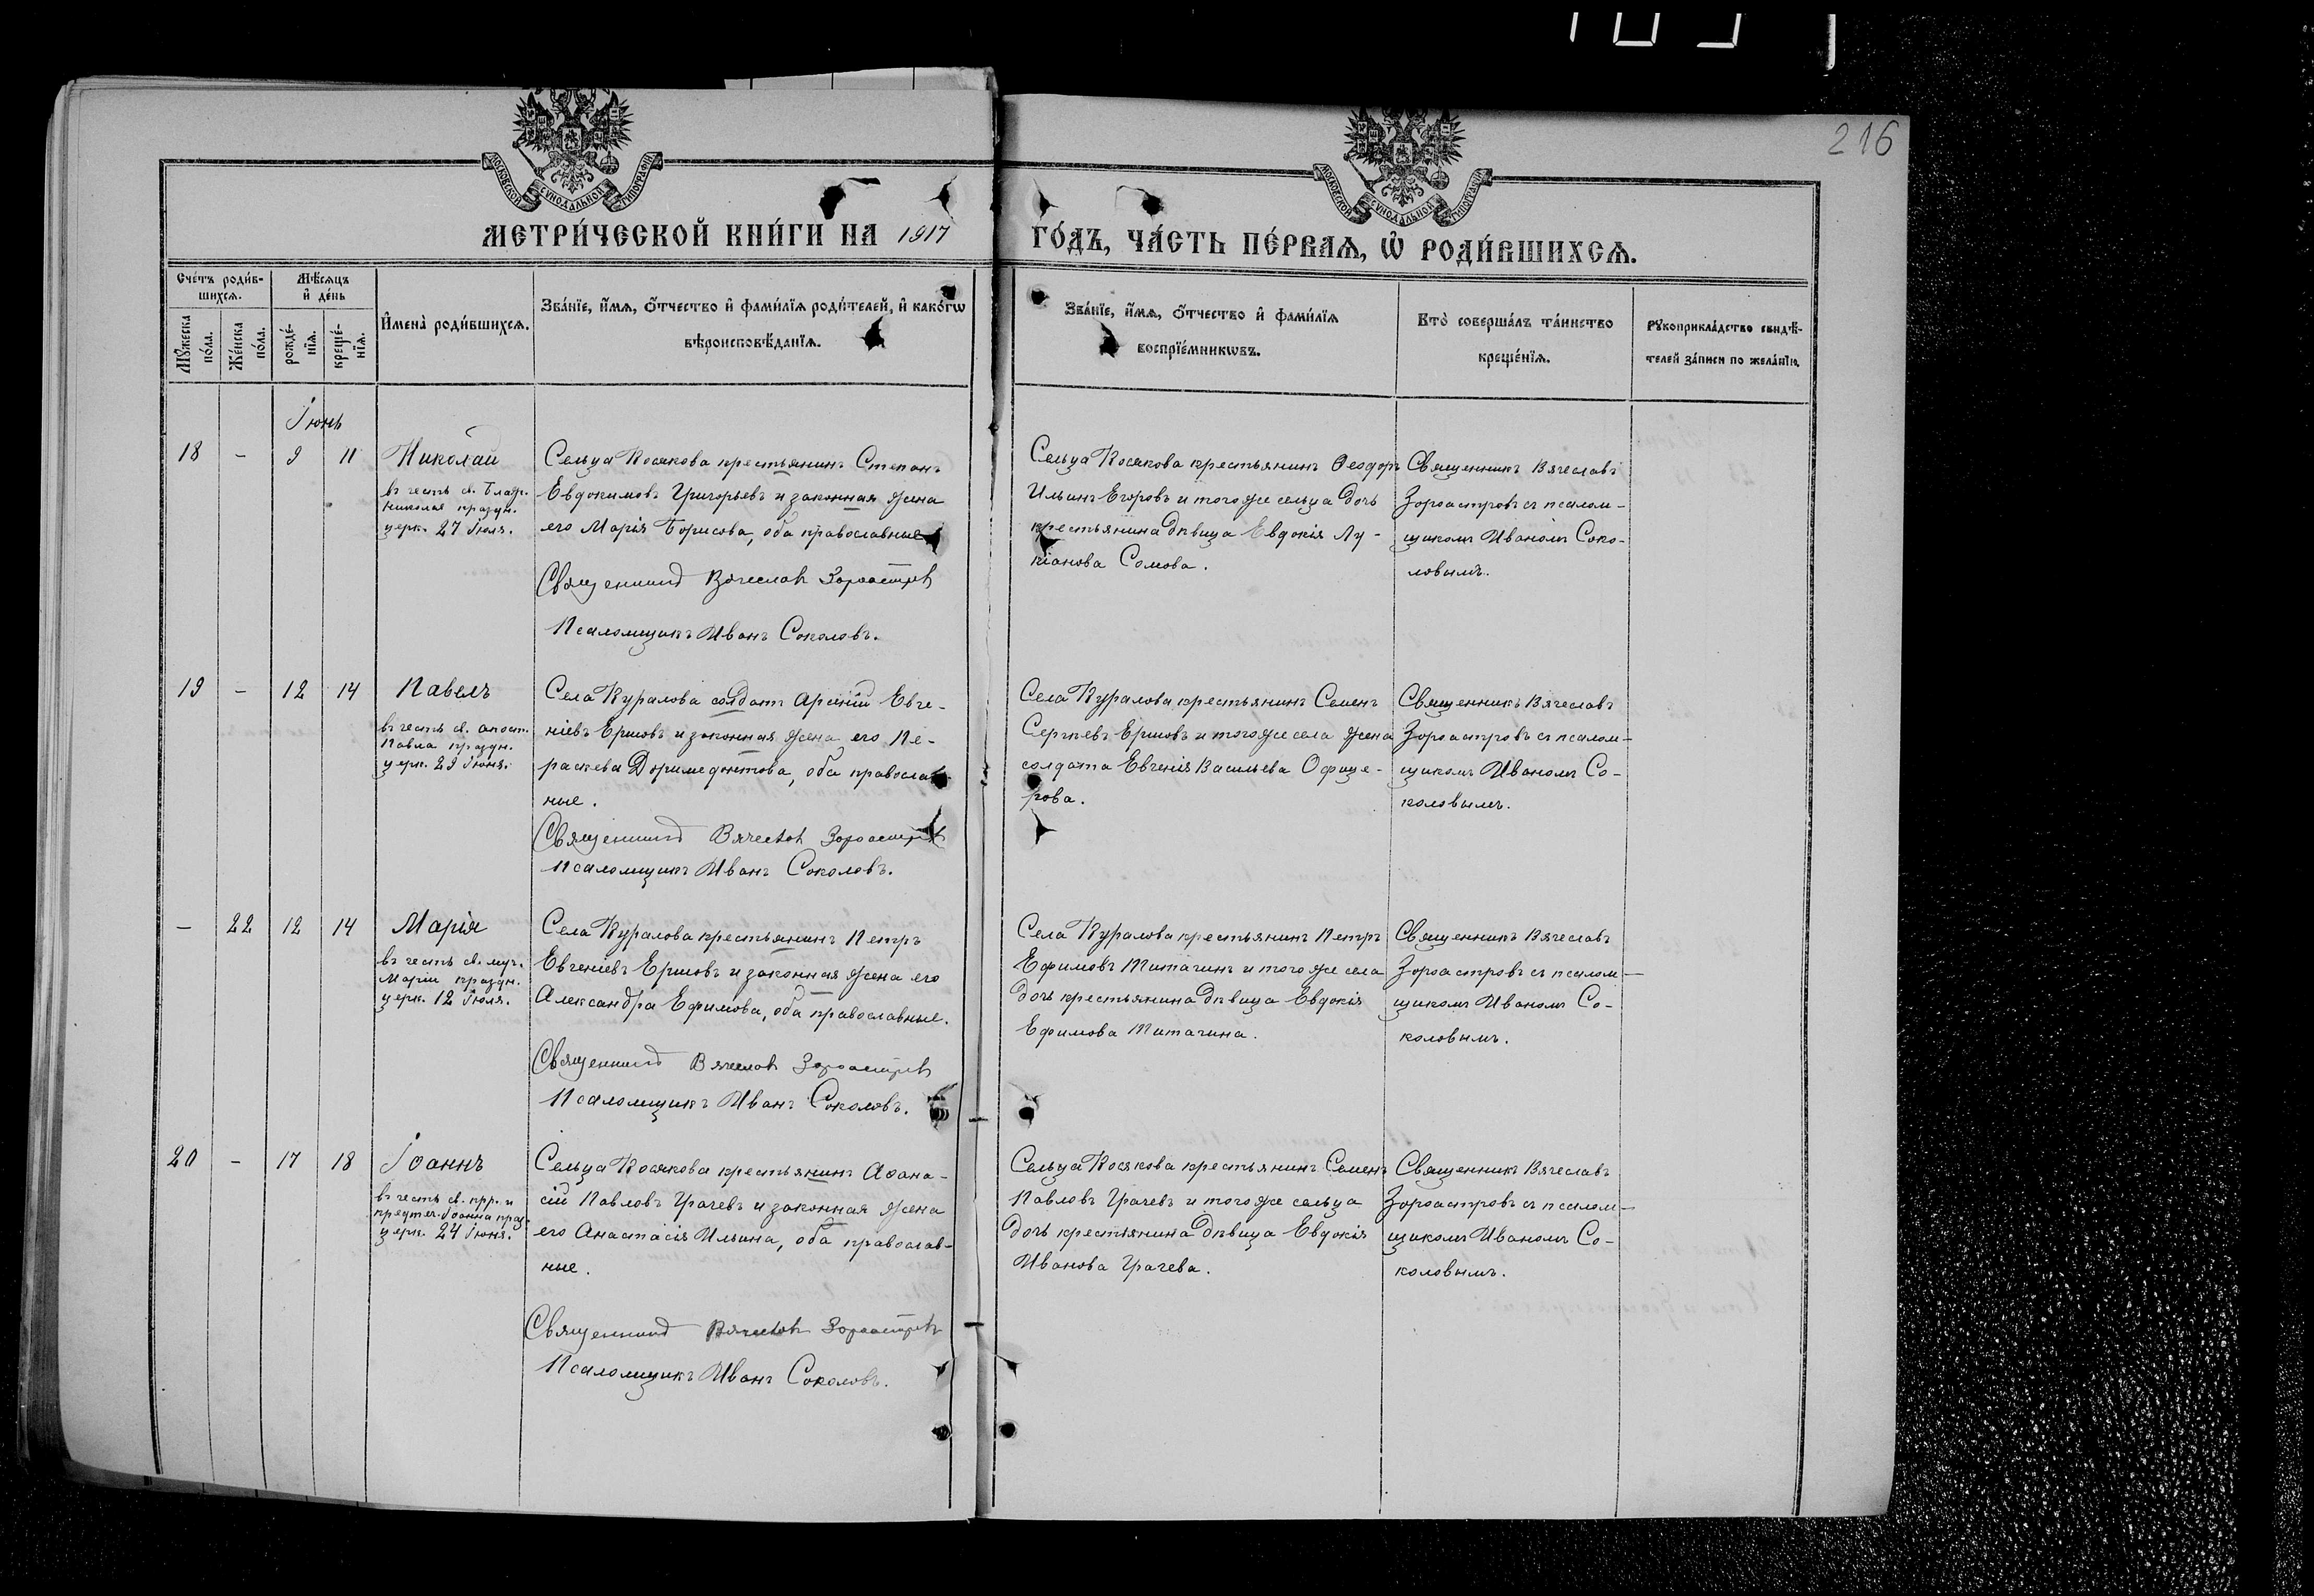 216
МОСКОВСКОЙ СѴНОДАЛЬНОЙ ТИПОГРАФІИ
МОСКОВСКОЙ СѴНОДАЛЬНОЙ ТИПОГРАФІИ
МЕТРИ́ЧЕСКОЙ КНИ́ГИ НА 1917 ГО́ДЪ, ЧА́СТЬ ПЕ́РВАѦ, Ѽ РОДИ́ВШИХСѦ.
Сче́тъ роди́в-
шихсѧ.
Мѣ́сѧцъ
и҆ де́нь
Мꙋ́жеска
по́ла.
Же́нска
по́ла.
рожде́-
нїѧ.
креще́-
нїѧ.
И҆мена̀ роди́вшихсѧ.
Зва́нїе, и҆́мѧ, ѻ҆́тчество и҆ фами́лїѧ роди́телей, и҆ како́гѡ
вѣроисповѣ́данїѧ.
Зва́нїе, и҆́мѧ, ѻ҆́тчество и҆ фами́лїѧ
воспрїе́мникѡвъ.
Кто̀ соверша́лъ та́инство
креще́нїѧ.
Рꙋкоприкла́дство свидѣ́-
телей за́писи по жела́нїю.
Іюнь
18 - 9 11
Николай
въ честь св. Благ.
Николая праздн.
церк. 27 Іюля.
Сельца Косякова крестьянинъ Степанъ
Евдокимовъ Григорьевъ и законная жена
его Марія Борисова, оба православные
Священникъ Вячеславъ Зороастровъ
Псаломщикъ Иванъ Соколовъ.
Сельца Косякова крестьянинъ Ѳеодоръ
Ильинъ Егоровъ и того же сельца дочь
крестьянина дѣвица Евдокія Лу-
кіанова Сомова.
Священникъ Вячеславъ
Зороастровъ съ псалом-
щикомъ Иваномъ Соко-
ловымъ.
19 - 12 14
Павелъ
въ честь св. апост.
Павла праздн.
церк. 29 Іюня.
Села Куралова солдатъ Арсеній Евге-
ніевъ Ершовъ и законная жена его Пе-
раскева Доримедонтова, оба православ-
ные.
Священникъ Вячеславъ Зороастровъ
Псаломщикъ Иванъ Соколовъ.
Села Куралова крестьянинъ Семенъ
Сергѣевъ Ершовъ и того же села жена
солдата Евгенія Васильева Офице-
рова.
Священникъ Вячеславъ
Зороастровъ съ псалом-
щикомъ Иваномъ Со-
коловымъ.
- 22 12 14
Марія
въ честь св. муч.
Маріи праздн.
церк. 12 Іюля.
Села Куралова крестьянинъ Петръ
Евгеніевъ Ершовъ и законная жена его
Александра Ефимова, оба православные.
Священникъ Вячеславъ Зороастровъ
Псаломщикъ Иванъ Соколовъ.
Села Куралова крестьянинъ Петръ
Ефимовъ Титагинъ и того же села
дочь крестьянина дѣвица Евдокія
Ефимова Титагина.
Священникъ Вячеславъ
Зороастровъ съ псалом-
щикомъ Иваномъ Со-
коловымъ.
20 - 17 18
Іоаннъ
въ честь св. прр. и
предтеч. Іоанна праз.
церк. 24 Іюня.
Сельца Косякова крестьянинъ Аѳана-
сій Павловъ Грачевъ и законная жена
его Анастасія Ильина, оба православ-
ные.
Священникъ Вячеславъ Зороастровъ
Псаломщикъ Иванъ Соколовъ.
Сельца Косякова крестьянинъ Семенъ
Павловъ Грачевъ и того же сельца
дочь крестьянина дѣвица Евдокія
Иванова Грачева.
Священникъ Вячеславъ
Зороастровъ съ псалом-
щикомъ Иваномъ Со-
коловымъ.